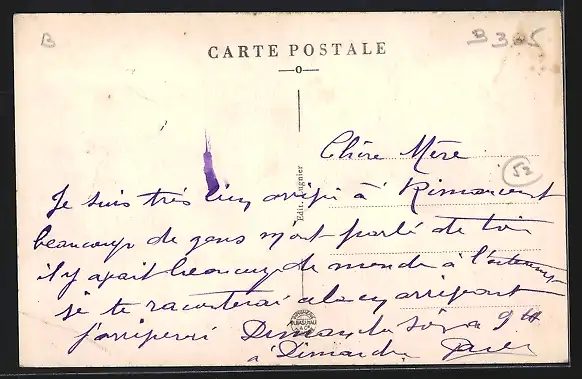 B
B 305
CARTE POSTALE
52
Chère Mère
Je suis très bien arrivé à Rimaucourt
beaucoup de gens m'ont parlé de toi
il y avait beaucoup de monde à
je te raconterai cela en arrivant
j'arriverai Dimanche soir à 9 H
à Dimanche
Edit.